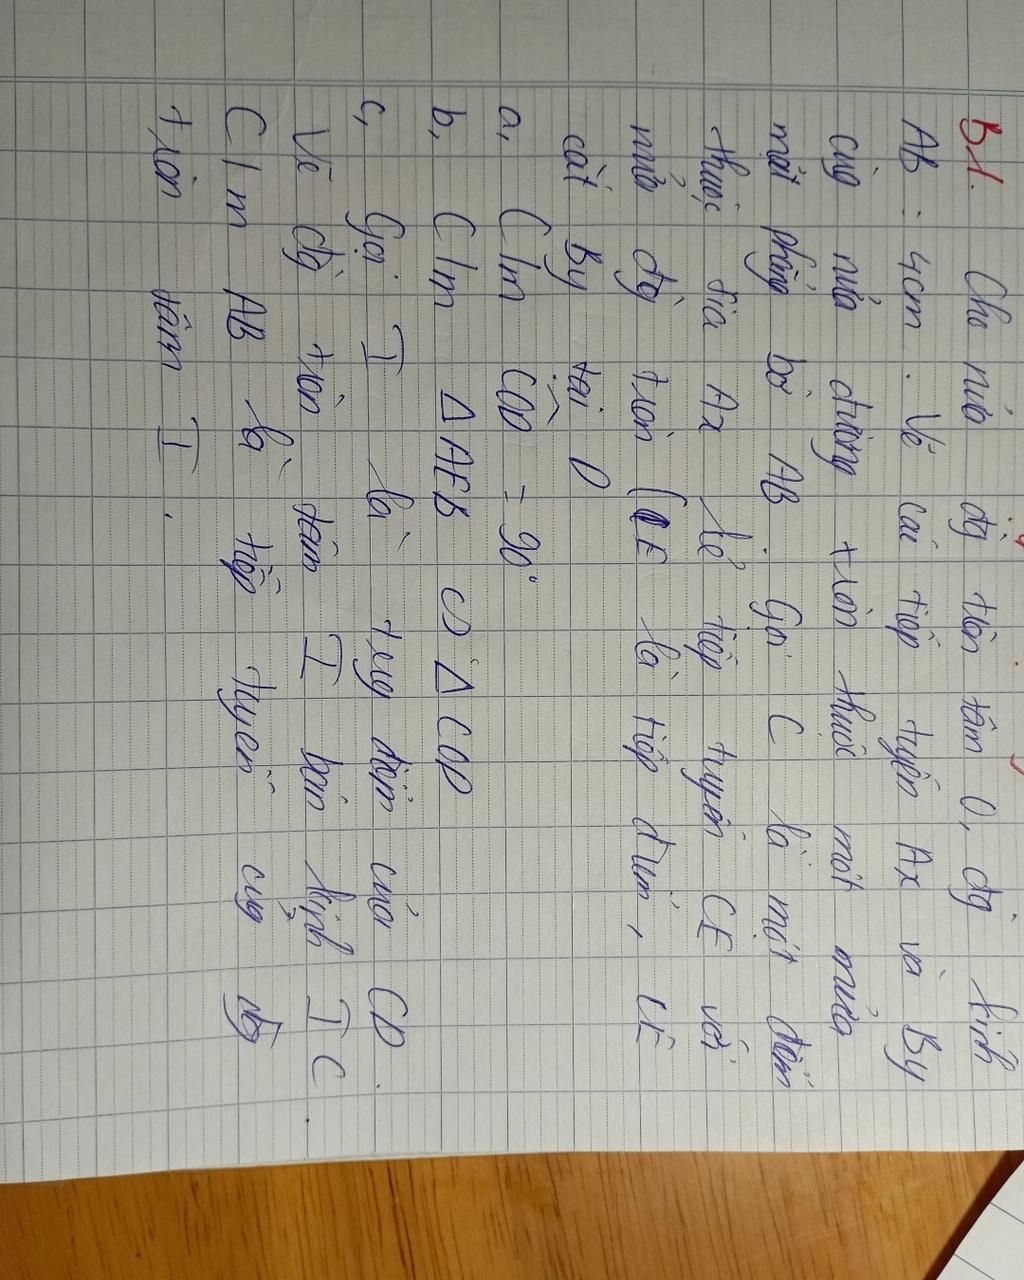 B1. Cho nửa đg tròn tâm O, đg kính
AB : 4cm. Vẽ cái tiếp tuyến Ax và By
cùg nửa đường tròn thuộc một nửa
mặt phẳng bờ AB. Gọi C là một điểm
thuộc tia Ax kẻ tiếp tuyến CE với
nửa đg tròn (E là tiếp điểm, CE
cắt By tại D
a, C/m COD = 90°
b, C/m Δ AEB ∽ Δ COD
c, Gọi I là trug điểm của CD.
Vẽ đg tròn tâm I bán kính IC.
C/m AB là tiếp tuyến của đg
tròn tâm I.